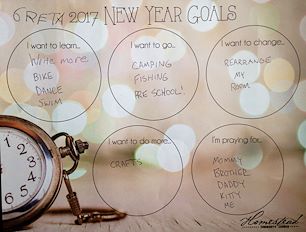 GRETA 2017 NEW YEAR GOALS
I want to learn...
Write more
BIKE
DANCE
SWIM
I want to go...
CAMPING
FISHING
PRE SCHOOL!
I want to change...
REARRANGE
MY
ROOM
I want to do more...
CRAFTS
I'm praying for...
MOMMY
BROTHER
DADDY
KITTY
ME
Homestead
COMMUNITY CHURCH